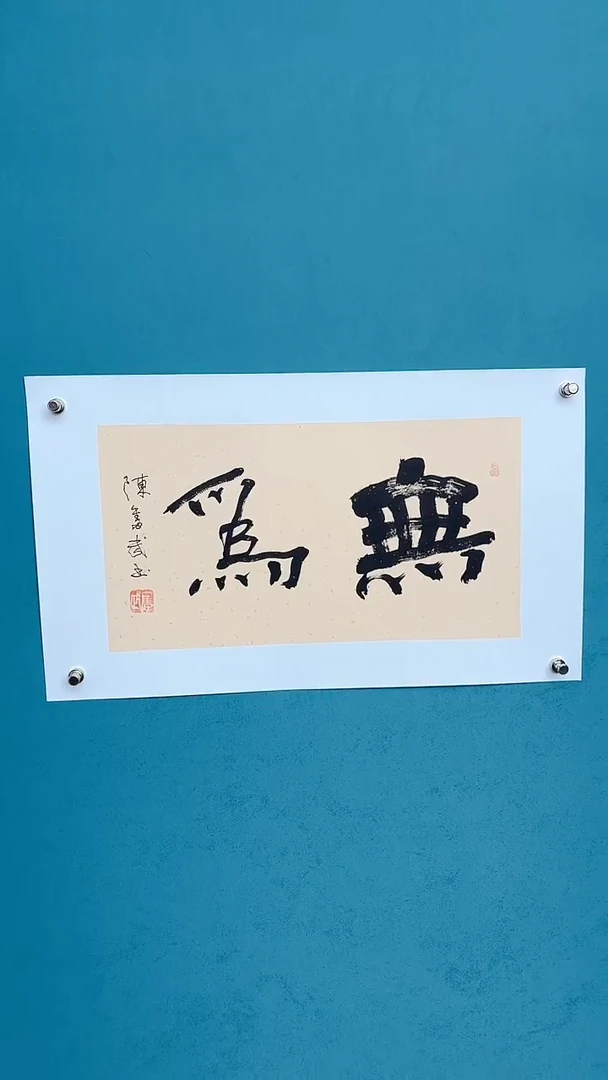 無為
陳
武書